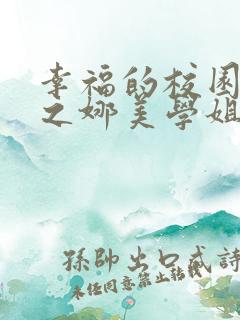 幸福的校園
之娜美學姐
孫帥出口成詩
未經同意禁止轉載